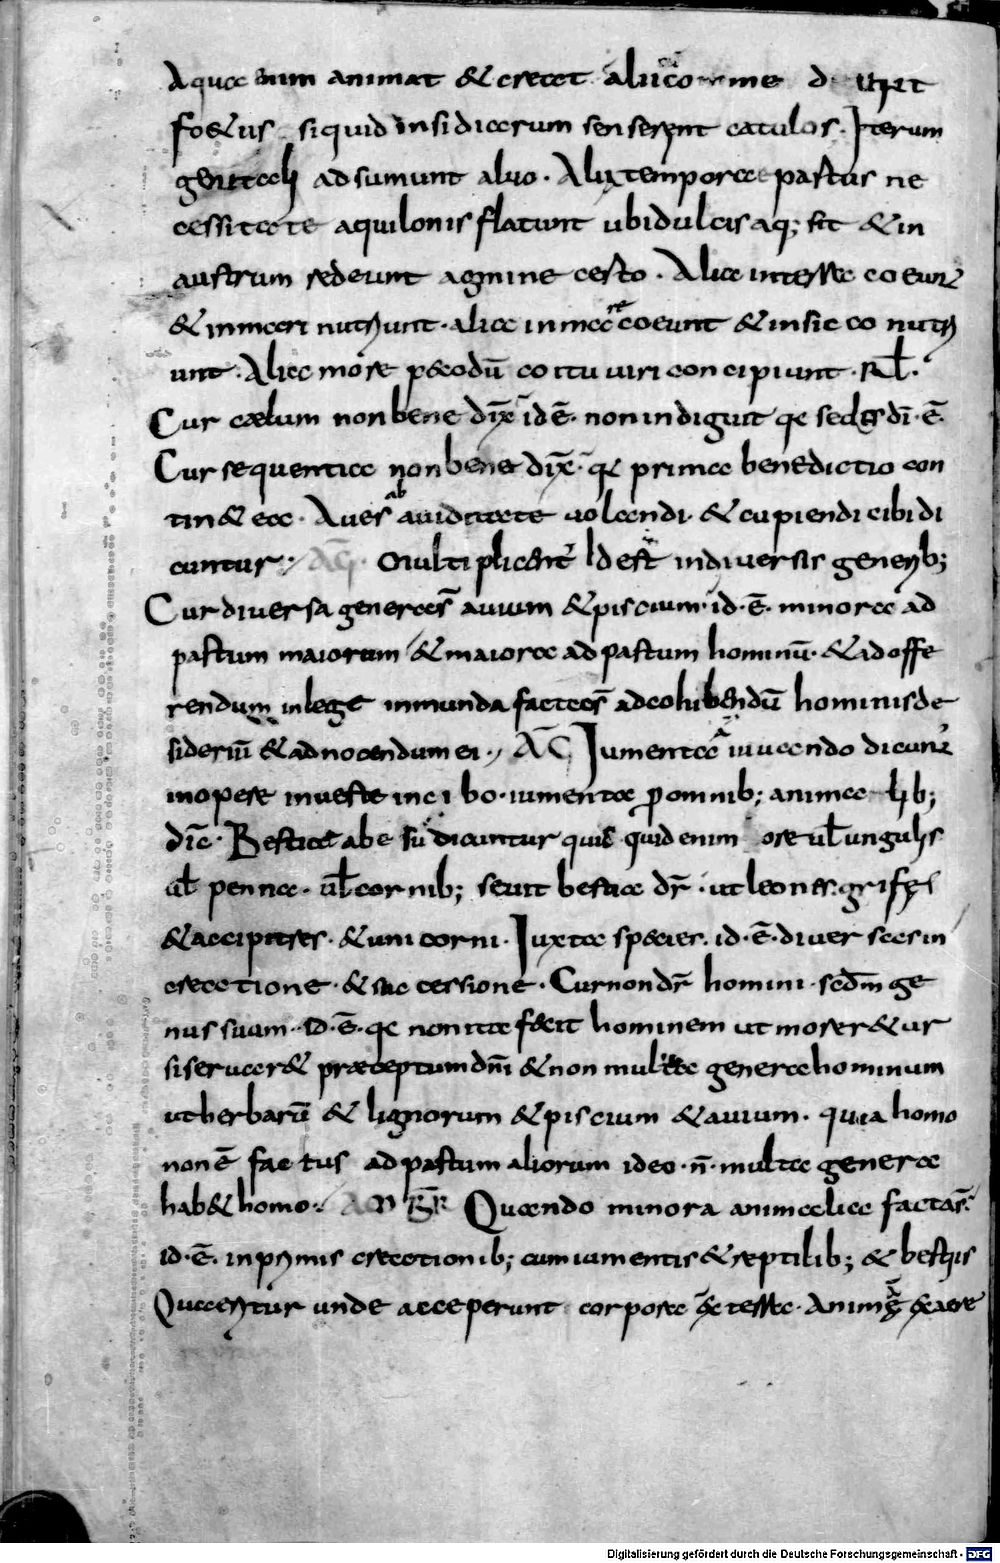 Aquae enim animat & creat
fo&us si quid insidiarum senserint catulos. Iterum
adsumunt aluo. Alii tempora pastus ne
cessitate aquilonis flatunt ubi dulcis aq; sit & in
austrum redeunt agmine certo. Aliae in terra coeunt
& in mari nutriunt. aliae in mare coeunt & in sicco nutri
unt. Aliae more p&odū coitu uiri concipiunt. RƗ.
Cur caelum non bene dix̄ id ē. non indiguit qa sedes dī. ē.
Cur sequentiae non bene dix̄. qa prima benedictio con
tin& ea. Aues ab auiditate uolandi. & cupiendi cibi di
cuntur. Multiplicent' Id est in diuersis generib;
Cur diuersa genera s̄ auium & piscium. id. ē. minora ad
pastum maiorum & maiora ad pastum hominū. & ad offe
rendum in lege inmunda facta s̄ ad cohibendū hominis de
siderium & ad nocendum ei. AC Iumenta a iuuando dicunt'
in opere in ueste in cibo. iumenta p̄ omnib; animalib;
dīc. Bestiae ab e sū dicuntur quis quid enim ore ul̄ ungulis
ul̄ penna. ul̄ cornib; seuit bestiae dr̄. ut leones. grifes
& accipitres. & unicorni. Iuxta species. id. ē. diuersas in
creatione. & successione. Cur non dr̄ homini. secdm ge
nus suum. id. ē. qa non ita fecit hominem ut mores & ur
si seruar& praeceptum dnī & non multa genera hominum
ut herbarū & lignorum & piscium & auium. quia homo
non ē factus ad pastum aliorum ideo. n̄. multa genera
hab& homo. Quando minora animalia facta s̄.
id. ē. in primis creationib; cum iumentis & reptilib; & bestiis
Quaeritur unde acceperunt corpora de terra. Anima de aere
Digitalisierung gefördert durch die Deutsche Forschungsgemeinschaft - DFG